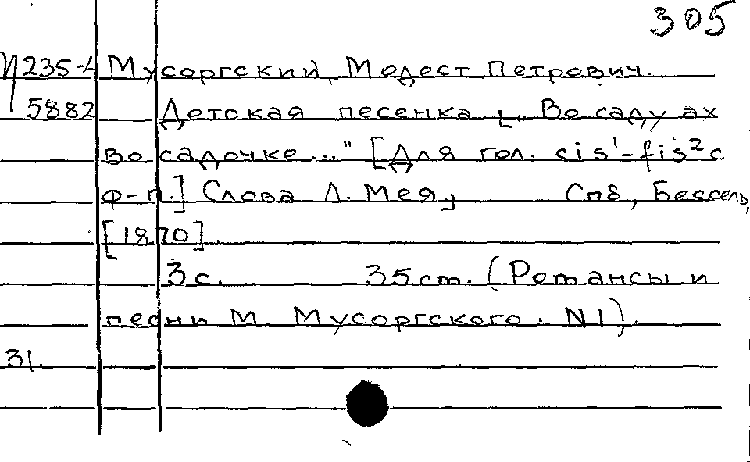 305
235-4 Мусоргский, Модест Петрович.
5882 Детская песенка „Во саду ах
во садочке..." [Для гол. cis¹-fis² с
ф-п.] Слова Л. Мея, Спб, Бессель,
[1870].
3 с. 35 cm. (Романсы и
песни М. Мусоргского. N1).
31.